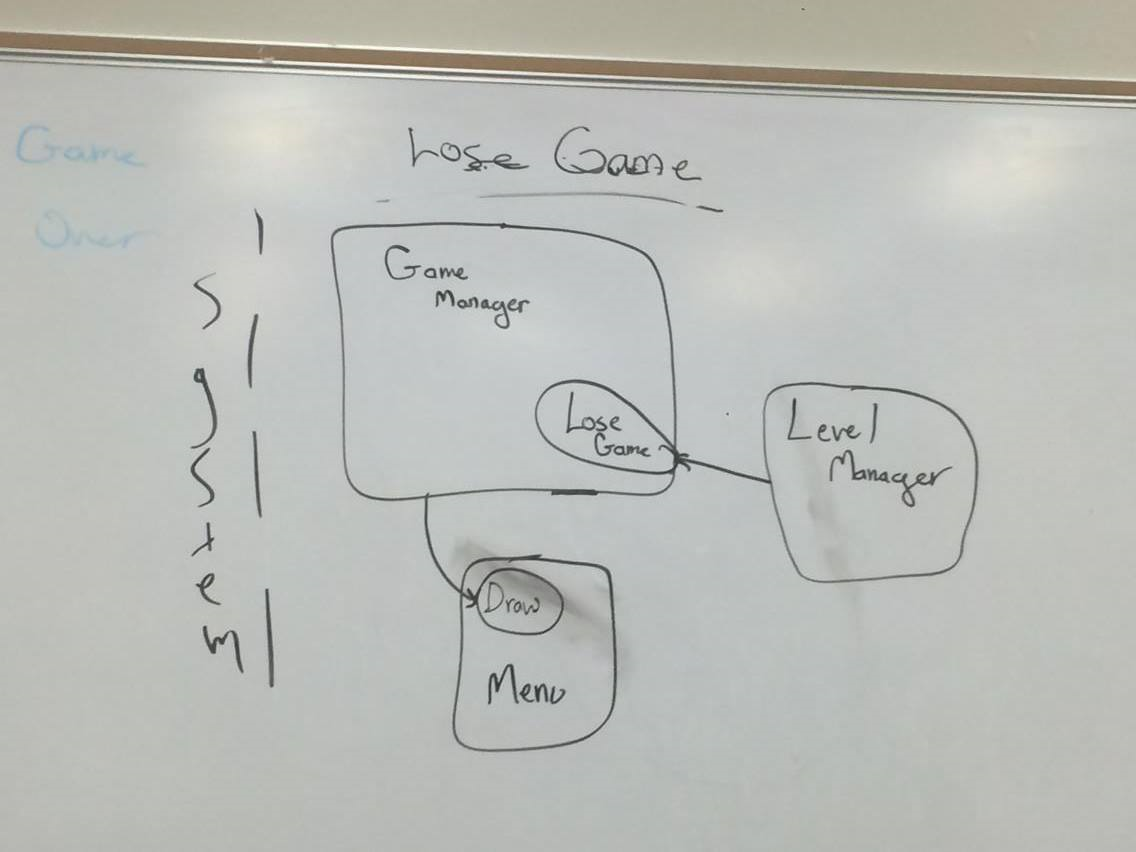 Game
Over
Lose Game
System
Game
Manager
Lose
Game
Level
Manager
Draw
Menu